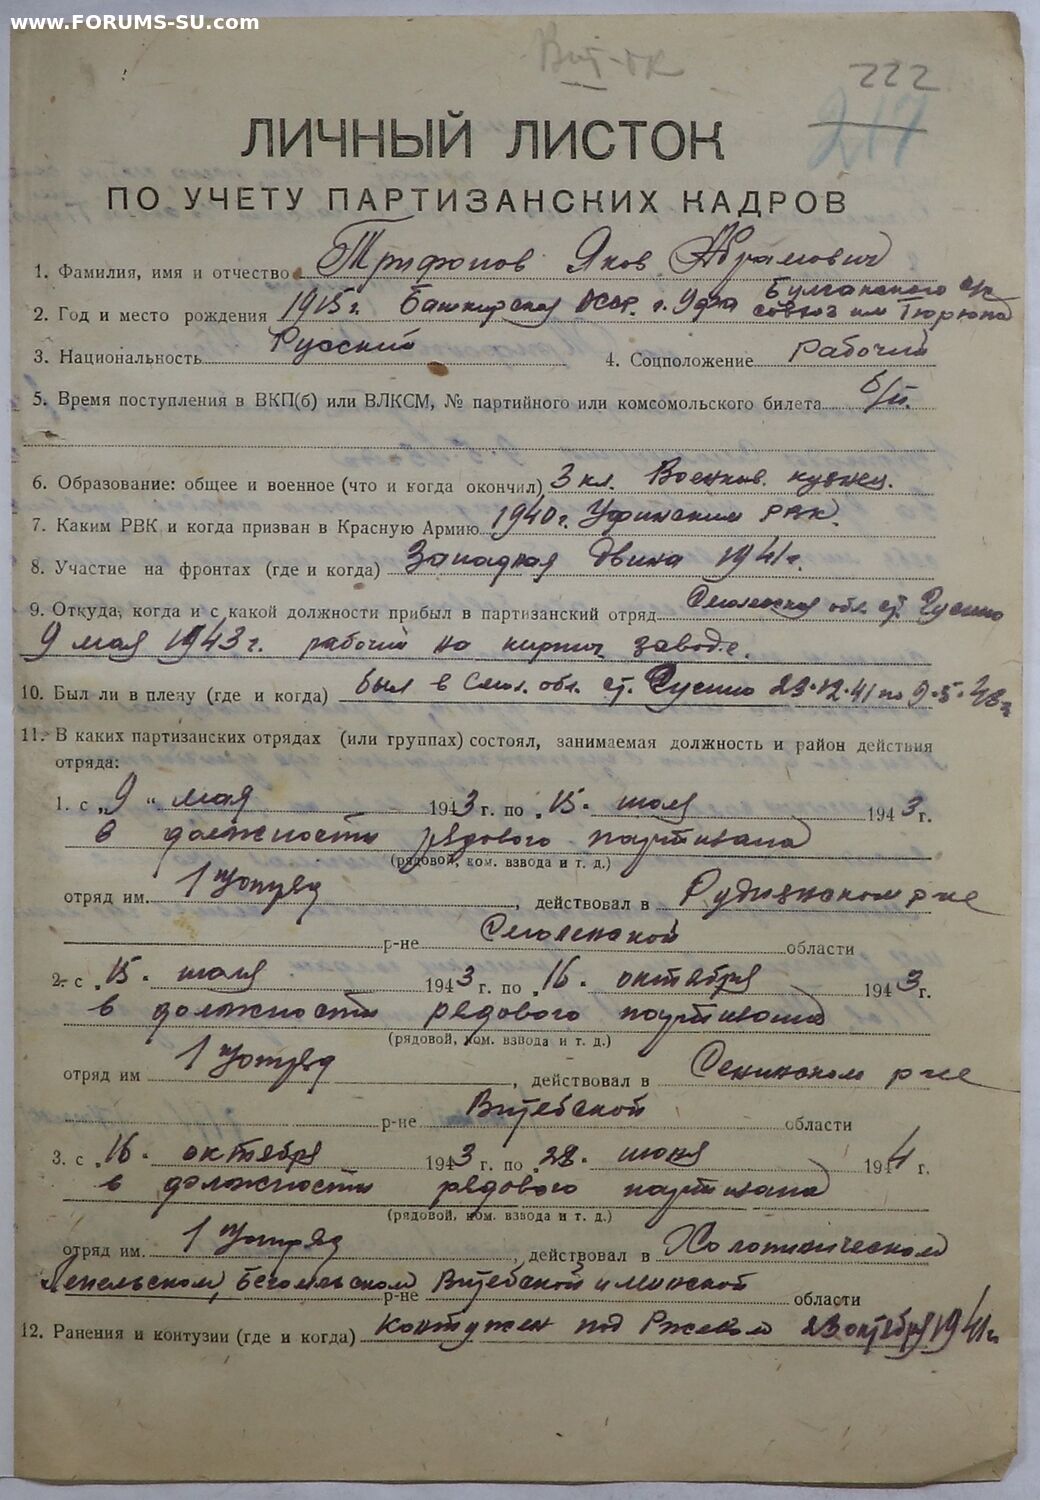 www.FORUMS-SU.com
222
217
ЛИЧНЫЙ ЛИСТОК
ПО УЧЕТУ ПАРТИЗАНСКИХ КАДРОВ
1. Фамилия, имя и отчество Трифонов Яков Абрамович
2. Год и место рождения 1915г. Башкирская АССР. г. Уфа Булгаковского с/с
3. Национальность Русский 4. Соцположение Рабочий
5. Время поступления в ВКП(б) или ВЛКСМ, № партийного или комсомольского билета б/п.
6. Образование: общее и военное (что и когда окончил) 3 кл.
7. Каким РВК и когда призван в Красную Армию 1940г. Уфимским РВК.
8. Участие на фронтах (где и когда) Западная Двина 1941г.
9. Откуда, когда и с какой должности прибыл в партизанский отряд Смоленская обл. ст. Гусино
9 мая 1943г. рабочий на кирпич заводе.
10. Был ли в плену (где и когда) был в Смол. обл. ст. Гусино 23.12.41 по 9.5.43г
11. В каких партизанских отрядах (или группах) состоял, занимаемая должность и район действия
отряда:
1. с „9 “ мая 1943 г. по „15. июля 1943г.
в должности рядового партизана
(рядовой, ком. взвода и т. д.)
отряд им. 1 , действовал в Руднянском р-не
р-не Смоленской области
2. с „15. июля 1943 г. по „16. октября 1943г.
в должности рядового партизана
(рядовой, ком. взвода и т. д.)
отряд им 1 , действовал в Сенинском р-не
р-не Витебской области
3. с „16. октября 1943 г. по „28. июня 1944 г.
в должности рядового партизана
(рядовой, ком. взвода и т. д.)
отряд им. 1 , действовал в Холопиническом
Лепельском, Бегомльском р-не Витебской и минской области
12. Ранения и контузии (где и когда) контужен под Ржевом 23 октября 1941г